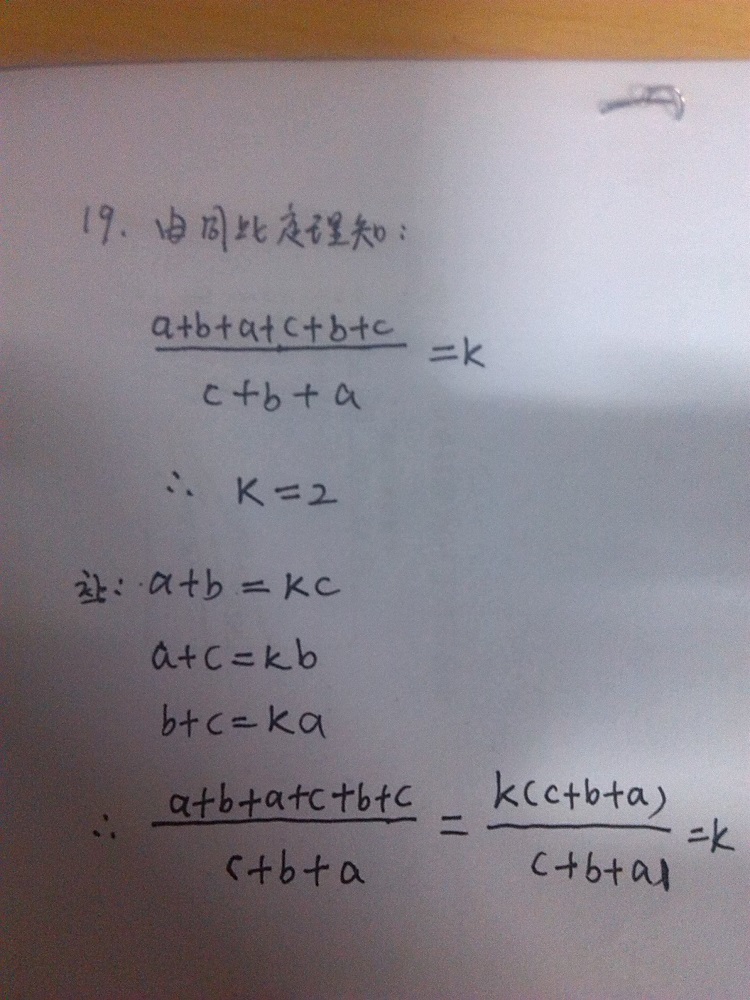 19. 由同比定理知:
a+b+a+c+b+c / c+b+a =k
∴ K=2
注: a+b=kc
a+c=kb
b+c=ka
∴ a+b+a+c+b+c / c+b+a = k(c+b+a) / c+b+a =k